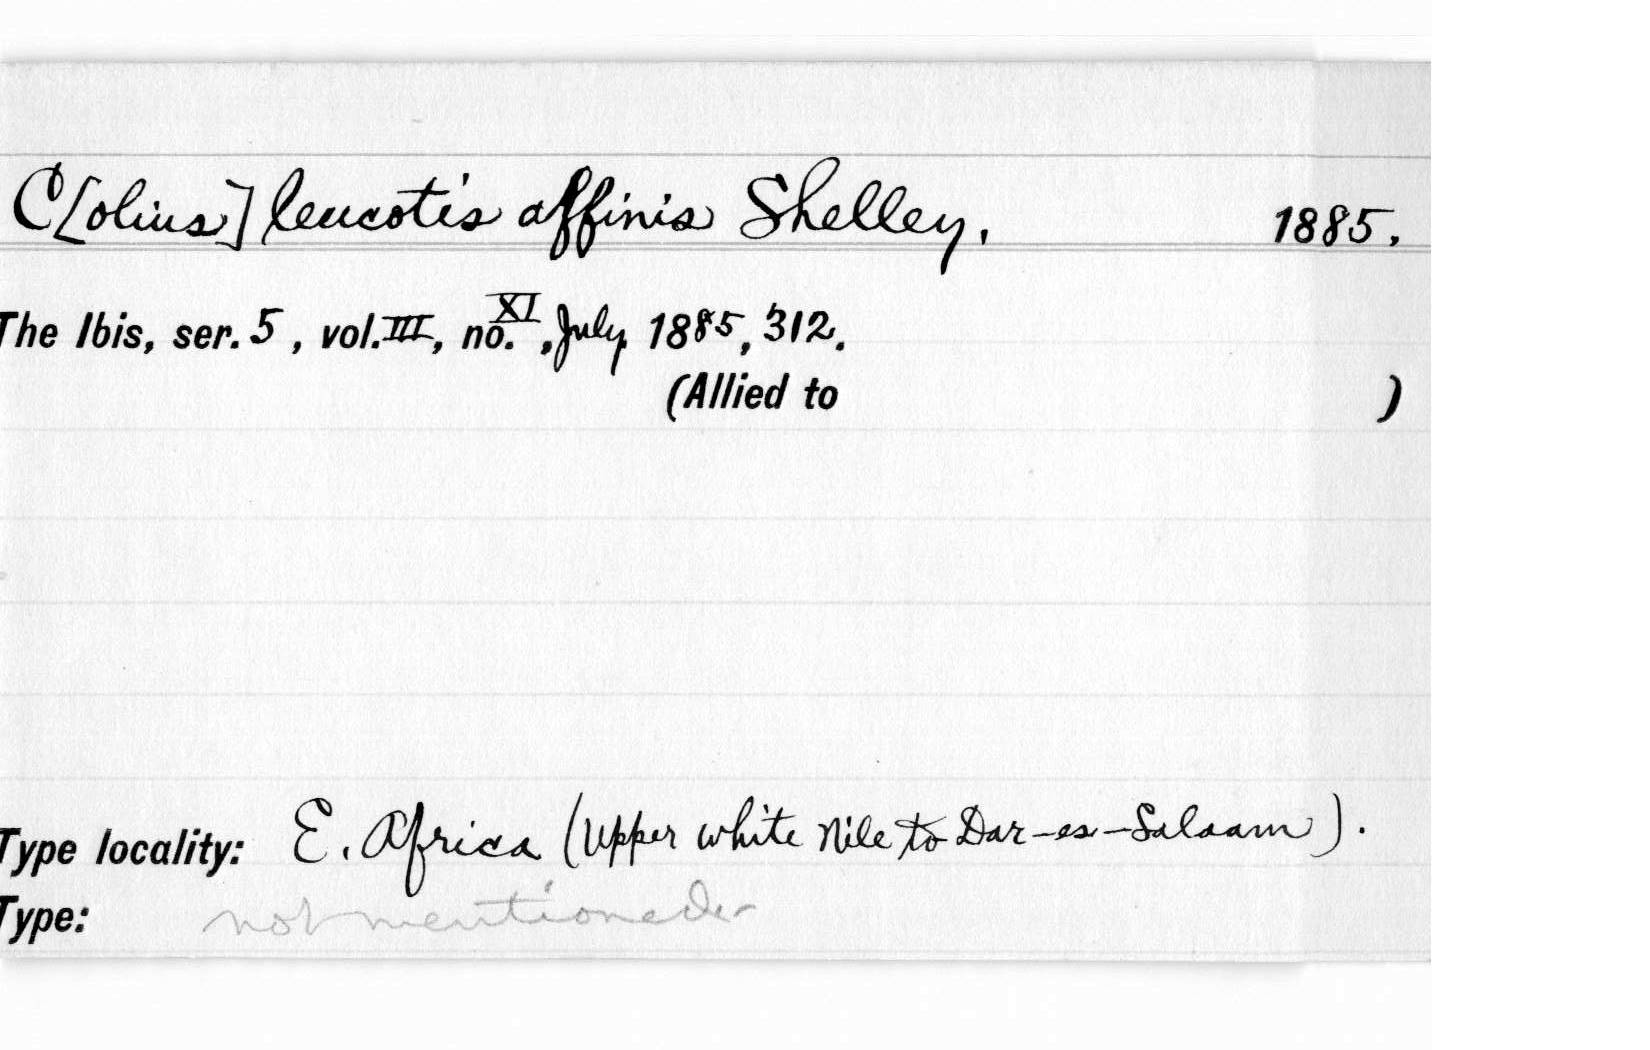 C[olius] leucotis affinis Shelley. 1885.
The Ibis, ser. 5, vol. III, no. XI, July 1885, 312.
(Allied to )
Type locality: E. Africa (Upper white Nile to Dar-es-Salaam).
Type: not mentioned